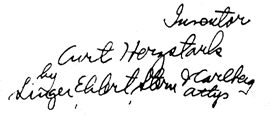 Inventor
Curt Herzstark
by
Singer, Ehlert, Stern & Carlberg
attys